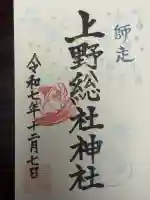 師走
上野總社神社
令和七年十二月七日